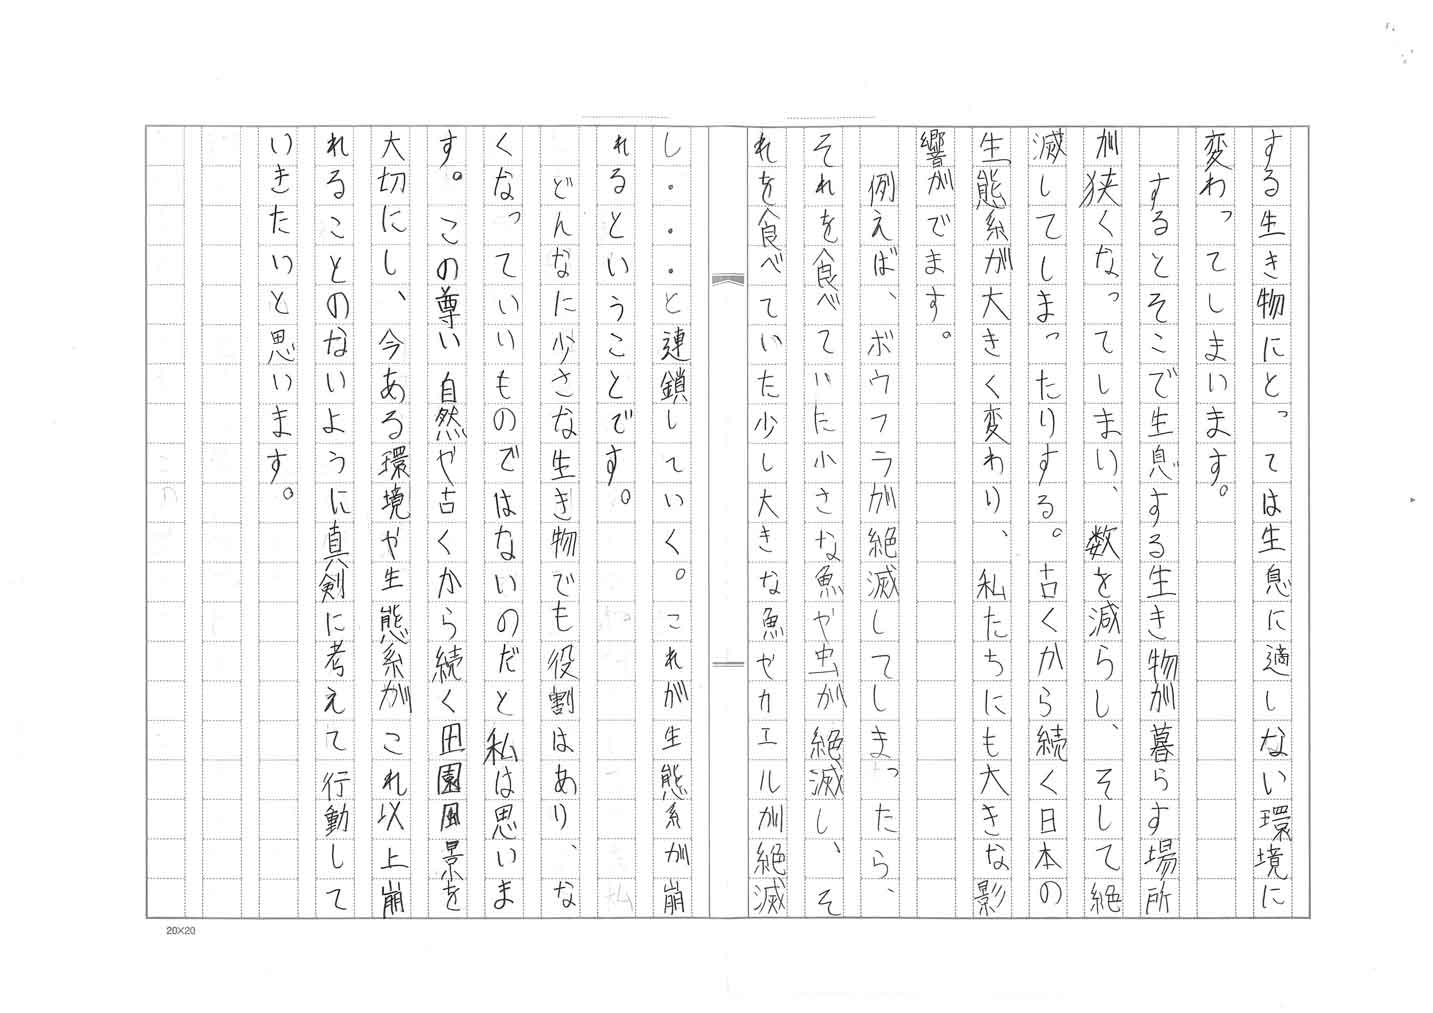 する生き物にとっては生息に適しない環境に
変わってしまいます。
するとそこで生息する生き物が暮らす場所
が狭くなってしまい、数を減らし、そして絶
滅してしまったりする。古くから続く日本の
生態系が大きく変わり、私たちにも大きな影
響がでます。
例えば、ボウフラが絶滅してしまったら、
それを食べていた小さな魚や虫が絶滅し、そ
れを食べていた少し大きな魚やカエルが絶滅
し・・・と連鎖していく。これが生態系が崩
れるということです。
どんなに少さな生き物でも役割はあり、な
くなっていいものではないのだと私は思いま
す。この尊い自然や古くから続く田園風景を
大切にし、今ある環境や生態系がこれ以上崩
れることのないように真剣に考えて行動して
いきたいと思います。
20×20